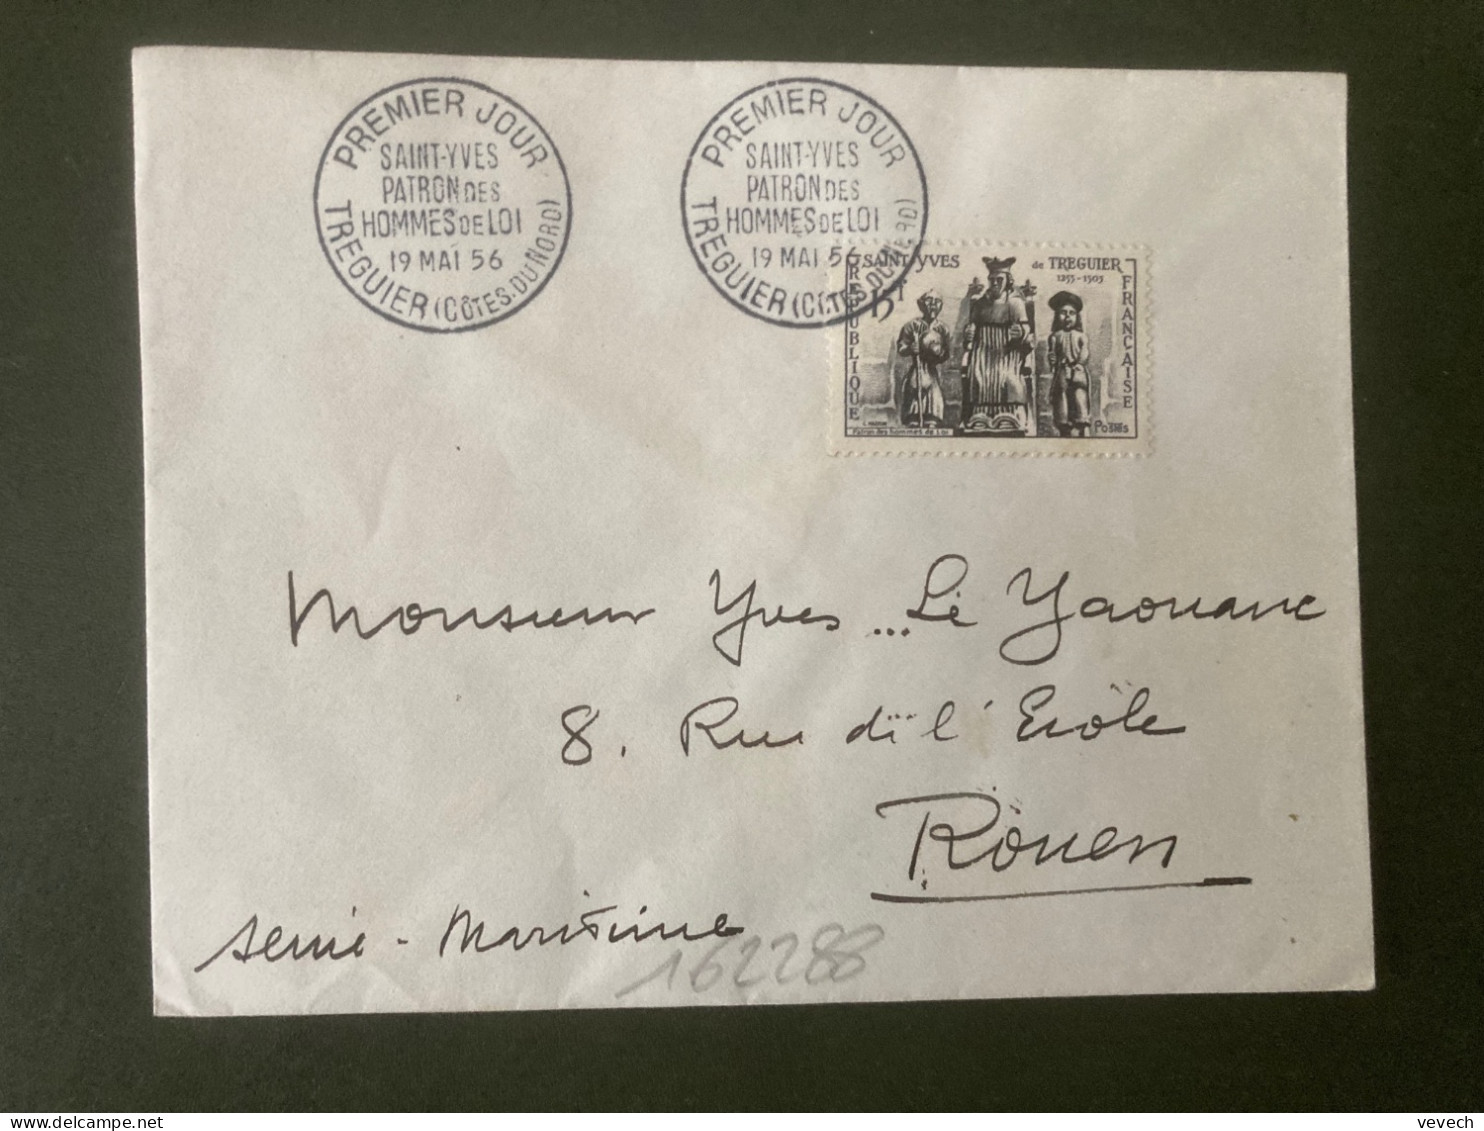 PREMIER JOUR
SAINT-YVES
PATRON DES
HOMMES DE LOI
19 MAI 56
TREGUIER (CÔTES. DU NORD)
PREMIER JOUR
SAINT-YVES
PATRON DES
HOMMES DE LOI
19 MAI 56
TREGUIER (CÔTES. DU NORD)
SAINT-YVES de TREGUIER
1253-1303
15F
REPUBLIQUE
FRANÇAISE
Patron des hommes de Loi
Postes
Monsieur Yves Le Yaouanc
8, Rue de l'École
Rouen
Seine-Maritime
162288
vevech